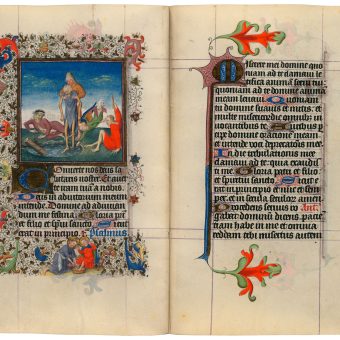 Converte nos deus sa
lutaris noster. Et auer
te iram tuā a nobis.
Deus in adiutorium meum
intende. Domine ad adiuuan
dum me festina. Gloria pri
et filio et spiritui sancto. Sicut
erat in principio. Psalmus.
Miserere mei domine quo
niam ad te clamaui
tifica animā serui tui
quoniam ad te domine animā
meam leuaui. Quoniam
tu domine suauis et mitis. et
multe misericordie omnib; in
uocantibus te. Auribus per
cipe domine orationem meam
et intende voci deprecatiōis mee.
In die tribulationis mee
clamaui ad te. quia exaudi
sti me. Gloria patri et filio et
spiritui sancto. Sicut
erat in principio et nunc et sem
per. et in secula seculorū amen.
Procedens Ant.
domini
habe in me et omnia
reddam tibi